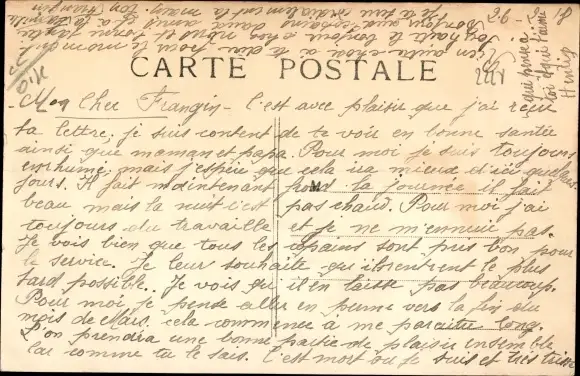 CARTE POSTALE
- Mon Cher Frangin - C'est avec plaisir que j'ai reçu
ta lettre, je suis content de te voir en bonne santé
ainsi que maman et papa. Pour moi je suis toujours
enrhumé mais j'espère que cela ira mieux d'ici quelques
jours. Il fait maintenant froid la journée il fait
beau mais la nuit c'est pas chaud. Pour moi j'ai
toujours du travaille et je ne m'ennuie pas.
Je vois bien que tous les copains sont pris bon pour
le service. Je leur souhaite qu'ils rentrent le plus
tard possible. Je vois qu'il en laisse pas beaucoup.
Pour moi je pense aller en perme vers la fin du
mois de Mars, cela commence a me paraitre long.
L'on prendra une bonne partie de plaisir ensemble
car comme tu le sais. C'est mort ou je suis et très triste
autre chose a te dire pour le moment
le bonjour a chez nous et bonne santé
Bonjour aux
qui pense a
toi et qui t'aime
Henri